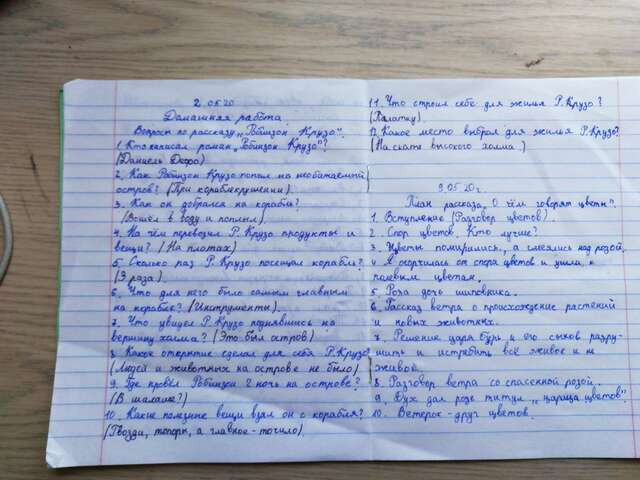 2.05.20
Домашняя работа.
Вопросы по рассказу "Робинзон Крузо".
1. Кто написал роман "Робинзон Крузо"?
(Даниель Дефо)
2. Как Робинзон Крузо попал на необитаемый
остров? (При кораблекрушении)
3. Как он добрался на корабль?
(Вошёл в воду и поплыл).
4. На чём перевозил Р. Крузо продукты и
вещи? (На плотах)
5. Сколько раз Р. Крузо посещал корабль?
(3 раза).
6. Что для него было самым главным
на корабле? (Инструменты).
7. Что увидел Р. Крузо поднявшись на
вершину холма? (Это был остров)
8. Какое открытие сделал для себя Р. Крузо?
(Людей и животных на острове не было)
9. Где провёл Робинзон 2 ночь на острове?
(В шалаше?)
10. Какие полезные вещи взял он с корабля?
(Гвозди, топоры, а главное - точило).
11. Что строил себе для жилья Р. Крузо?
(Палатку).
12. Какое место выбрал для жилья Р. Крузо?
(На скате высокого холма.)
9.05.20г.
План рассказа "О чём говорят цветы".
1. Вступление (Разговор цветов).
2. Спор цветов. Кто лучше?
3. Цветы помирились, а смеялись над розой.
4. Я огорчилась от спора цветов и ушла к
полевым цветам.
5. Роза дочь шиповника.
6. Рассказ ветра о происхождение растений
и новых животных.
7. Решение царя бурь и его сынов разру-
шить и истребить всё живое и не
живое.
8. Разговор ветра со спасенной розой.
9. Дух дал розе титул "царица цветов".
10. Ветерок - друг цветов.